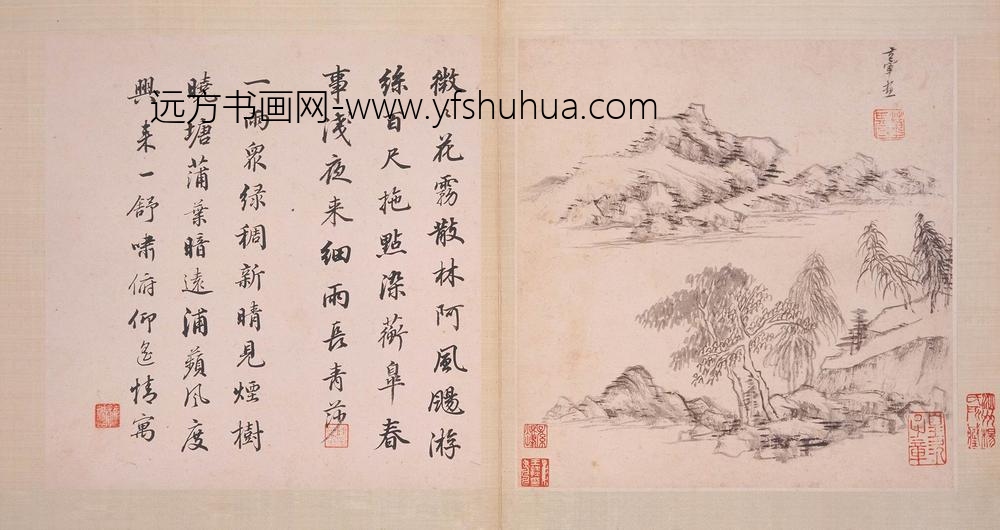 微花霧散林阿風颺游
絲百尺拖點染蘅皋春
事淺夜来細雨長青莎
一雨眾綠稠新晴見煙樹
曉塘蒲葉暗遠浦蘋风度
興来一舒嘯俯仰遙情寓
远方书画网-www.yfshuhua.com